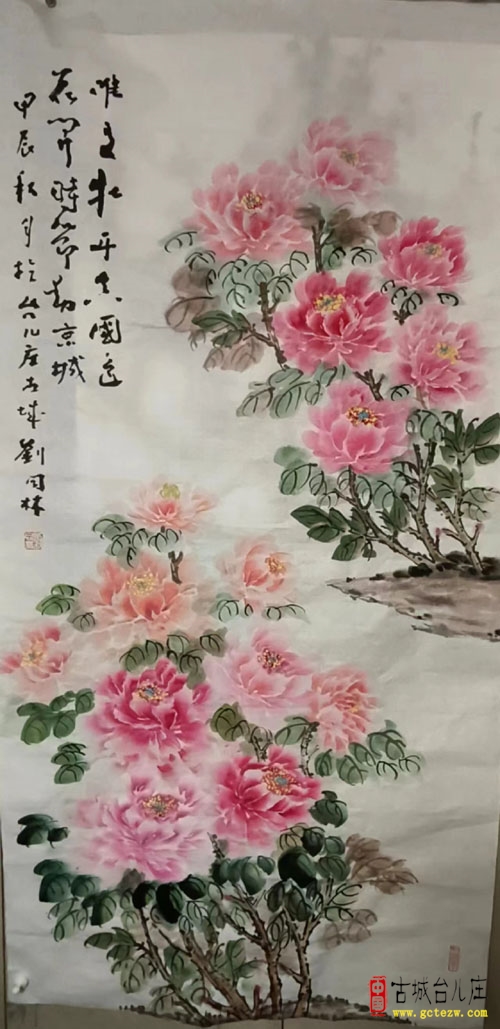 唯有牡丹真國色
花開時節動京城
甲辰秋月於台儿庄古城劉同林
中国
古城台儿庄
www.gctezw.com